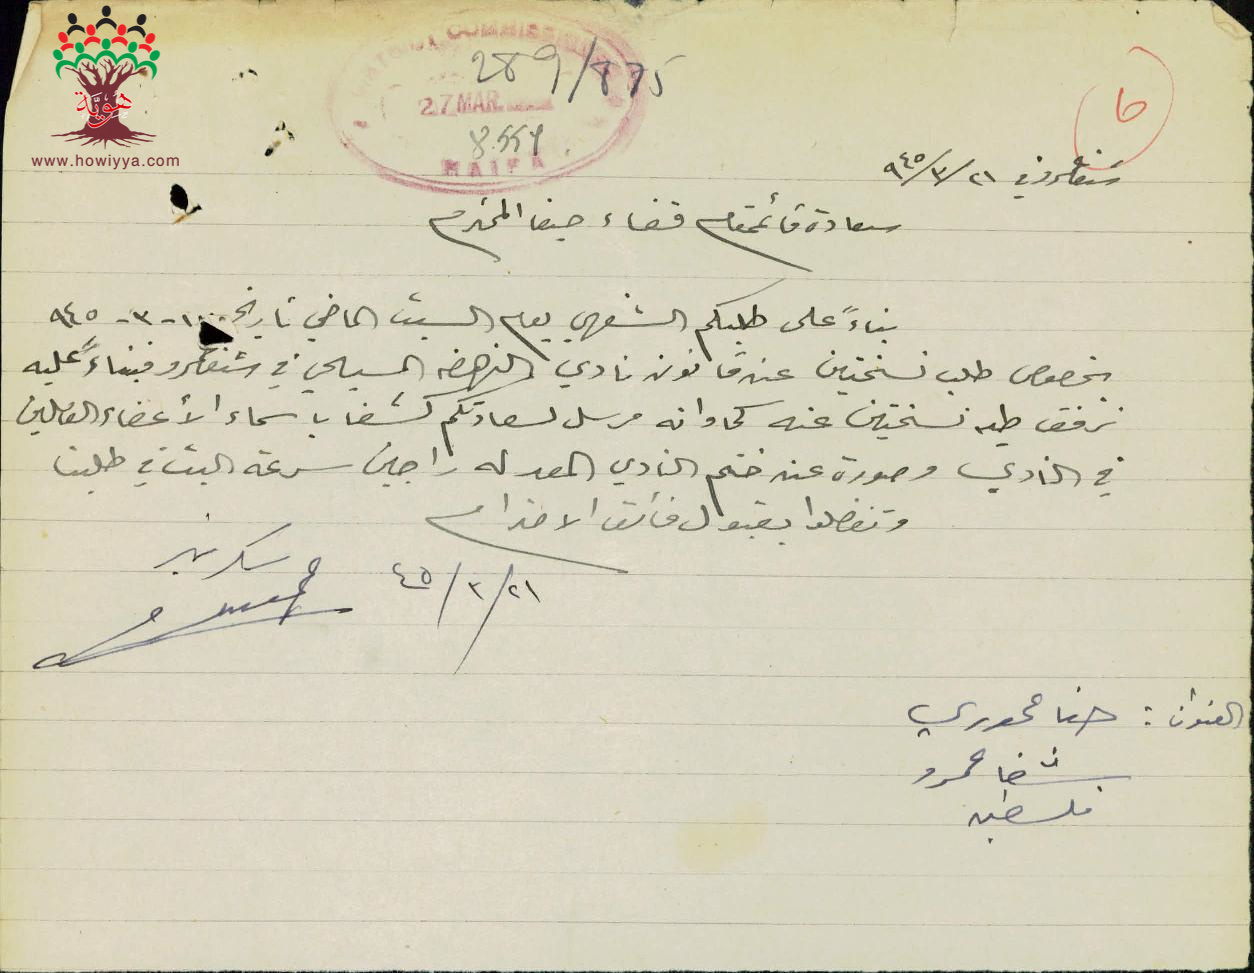 هويّة
www.howiyya.com
DISTRICT COMMISSIONER
289/875
27 MAR.
HAIFA
6
شفاعمرو في ٢١/٣/٩٤٥
سعادة قائمقام قضاء حيفا المحترم
بناءً على طلبكم الشفهي يوم السبت الماضي تاريخ ١٠-٣-٩٤٥
بخصوص طلب نسختين عن قانون نادي النهضه المسيحي في شفاعمرو فبناءً عليه
نرفق طيه نسختين عنه كما وانه مرسل لسعادتكم كشفا باسماء الأعضاء العاملين
في النادي وصورة عن ختم النادي المعد له راجين سرعة البت في طلبنا
وتفضلوا بقبول فائق الاحترام
سكرتير
٢١/٣/٤٥
العنوان: حنا خوري
شفاعمرو
فلسطين